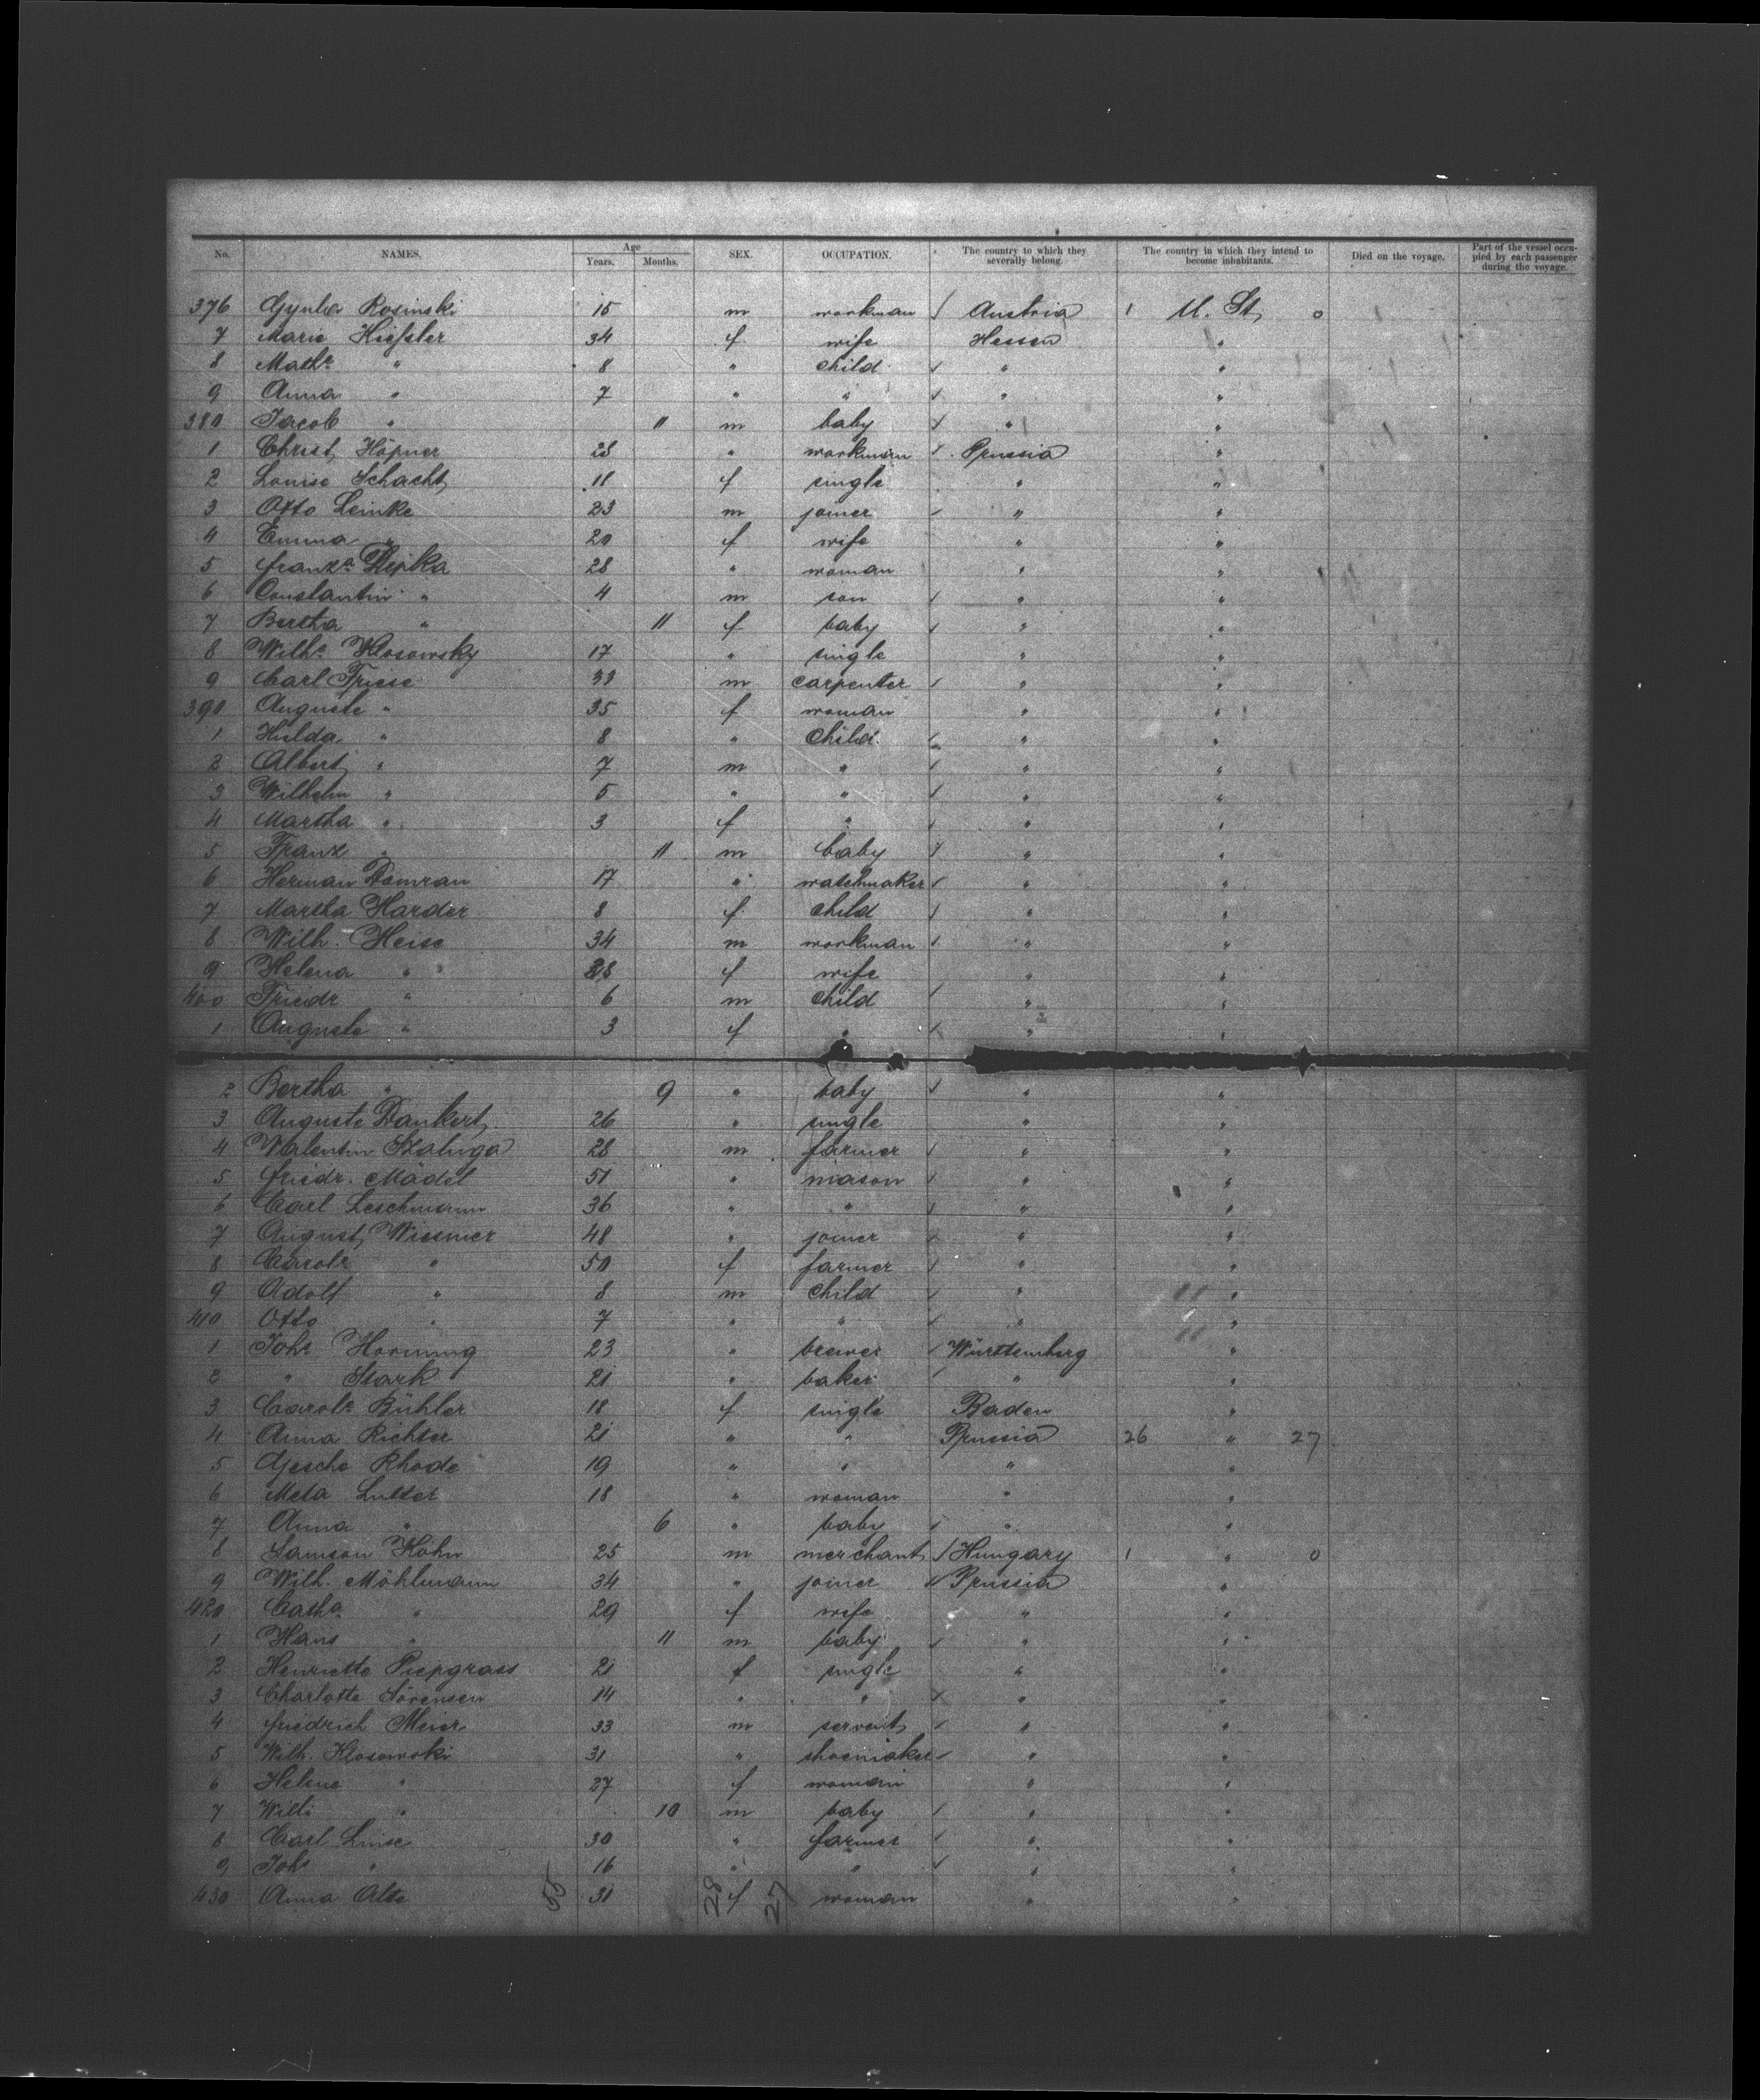 No. NAMES. Age Years. Months. SEX. OCCUPATION. The country to which they severally belong. The country in which they intend to become inhabitants. Died on the voyage. Part of the vessel occupied by each passenger during the voyage.
376 Rosinski 15 m workman Austria 1 U. St. 0
7 Marie Hiessler 34 f wife Hessen "
8 Mathe " 8 " child " "
9 Anna " 7 " " " "
380 Jacob " 11 m baby " "
1 Christ. Höpner 28 " workman Prussia "
2 Louise Schacht 18 f single " "
3 Otto Leinke 23 m joiner " "
4 Emma " 20 f wife " "
5 Franza 28 " woman " "
6 Constantin " 4 m son " "
7 Bertha " 11 f baby " "
8 Wilhe Klosowsky 17 " single " "
9 Carl Friese 33 m carpenter " "
390 Auguste " 35 f woman " "
1 Hulda " 8 " child " "
2 Albert " 7 m " " "
3 Wilhelm " 5 " " " "
4 Martha " 3 f " " "
5 Franz " 11 m baby " "
6 Herman Damrau 17 " watchmaker " "
7 Martha Harder 8 f child " "
8 Wilh. Heise 34 m workman " "
9 Helena " 28 f wife " "
400 Friedr " 6 m child " "
1 Auguste " 3 f " " "
2 Bertha " 9 " baby " "
3 Auguste Dankert 26 " single " "
4 Valentin Szaluga 28 m farmer " "
5 Friedr. Mädel 51 " mason " "
6 Carl Leschmann 36 " " " "
7 August Wiesner 48 " joiner " "
8 Carole " 50 f farmer " "
9 Adolf " 8 m child " "
410 Otto " 7 " " " "
1 Johs Hornung 23 " brewer Württemberg "
2 " Stark 21 " baker " "
3 Carole Bühler 18 f single Baden "
4 Anna Richter 21 " " Prussia 26 " 27
5 Gescho Rhode 19 " " " "
6 Meta Lutter 18 " woman " "
7 Anna " 6 " baby " "
8 Samson Kohn 25 m merchant Hungary 1 " 0
9 Wilh. Möhlmann 34 " joiner Prussia "
420 Catha " 29 f wife " "
1 Hans " 11 m baby " "
2 Henriette Piepgrass 21 f single " "
3 Charlotte Sörensen 14 " " " "
4 Friedrich Meier 33 m servant " "
5 Wilh. Klosowski 31 " shoemaker " "
6 Helene " 27 f woman " "
7 Willi " 10 m baby " "
8 Carl Linse 30 " farmer " "
9 Johs " 16 " " " "
430 Anna Alts 55 31 28 f 27 woman " "